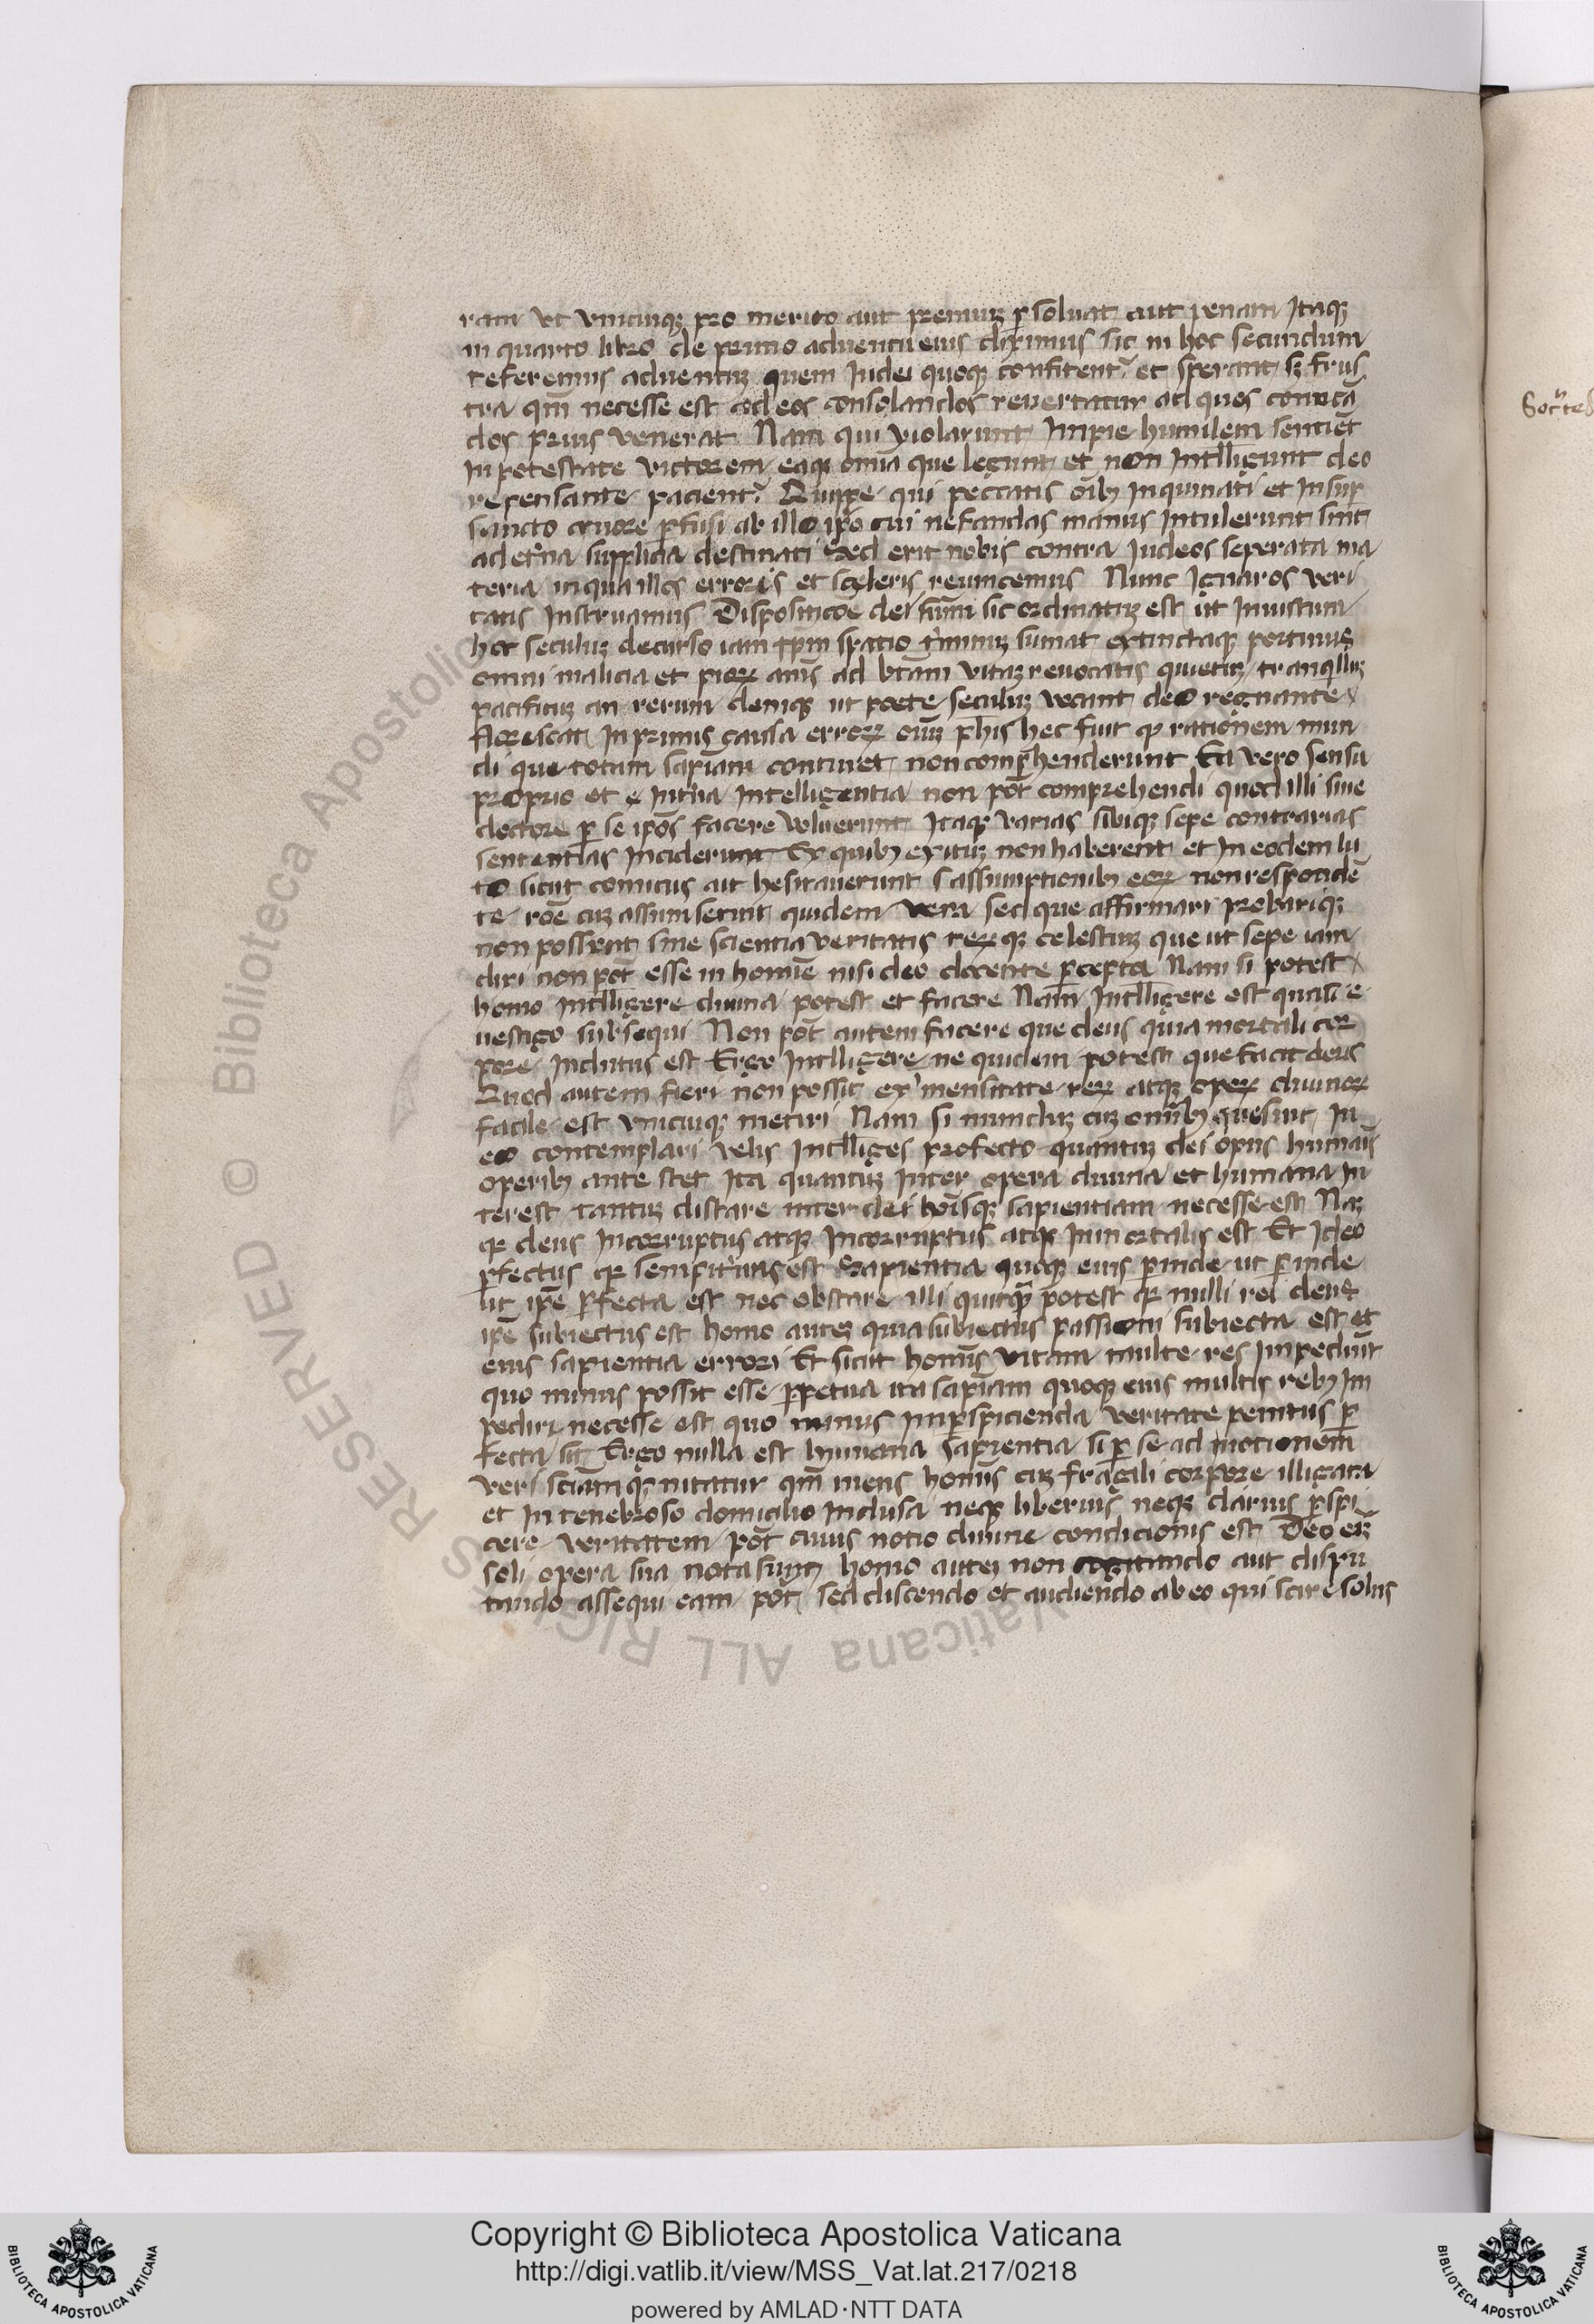 ram ut unicuiqꝫ pro merito aut premiuꝫ ꝑsoluat aut penam Itaqꝫ
in quarto libro de primo aduentu eius diximus sic in hoc secundum
referemus aduentuꝫ quem Iudei quoqꝫ confitent᷑ et sperant sꝫ frus
tra qm̄ necesse est ad eos consolandos reuertatur ad quos conuocā
dos prius venerat Nam qui violarunt Impie humilem sentiēt
In potestate victorem eaqꝫ om̄ia que legunt et non Intlligunt deo
repensante pacient᷑ Quippe qui peccatis oībꝫ Inquinati et Insuꝑ
sancto cruore ꝑfusi ab illo ip̄o cui nefandas manus Intulerunt sint
ad et᷑na supplicia destinati Sed erit nobis contra Iudeos seperata ma
teria in qua illos erroris et sceleris reuincemus Nunc Ignaros veri
tatis Instruamus Dispositiōe dei sūmi sic ordinatuꝫ est ut Iniustum
hoc seculuꝫ decurso iam tp̄m spatio t᷑minuꝫ sumat extinctaqꝫ portinus
omni malicia et pioꝝ aīs ad btām vitaꝫ reuocatis quietuꝫ tranqlluꝫ
pacificuꝫ an rerum deniqꝫ ut poete seculuꝫ vocant deo regnante
florescat In primis causa erroꝝ oīuꝫ ph̄is hec fuit ꝙ rationem mun
di que totam sapīam continet non comp̄henderunt Ea vero sensu
proprio et e Int᷑na Intelligentia non pōt comprehendi quod illi sine
doctore ꝑ se ip̄os facere voluerunt Itaqꝫ varias sibiqꝫ sepe contrarias
sententias Inciderunt Ex quibꝫ exituꝫ non haberent et In eodem lu
to sicut comicus ait hesitauerunt s assumptionibꝫ eoꝝ non respondē
te rōe cuꝫ assumserint quidem vera sed que affirmari probariqꝫ
non possent sine scientia veritatis reꝝ qꝫ celestiuꝫ que ut sepe iam
dixi non pōt esse in homīe nisi deo docente ꝑcepta Nam si potest
homo Intlligere diuina potest et facere Nam Intlligere est quasi e
uestigo subsequi Non pōt autem facere que deus quia mortali cor
pore Indutus est Ergo Intlligere ne quidem potest que facit deus
Quod autem fieri non possit ex mensitate reꝝ atqꝫ opeꝝ diuinoꝝ
facile est vnicuiqꝫ metiri Nam si munduꝫ cuꝫ omībꝫ que sunt In
eo contemplari velis Intlliges profecto quantuꝫ dei opus humaīs
operibꝫ ante stet Ita quantuꝫ Inter opera diuina et humana In
terest tantuꝫ distare inter dei hoīsqꝫ sapientiam necesse est Naꝫ
ꝙ deus Incorruptus atqꝫ Incorruptus atqꝫ Inmortalis est Et Ideo
ꝑfectus ꝙ sempit᷑nus est Sapientia quoqꝫ eius ꝑinde ut ꝑinde
ut ip̄e ꝑfecta est nec obstare illi quicqͣ potest ꝙ nulli rei deus
ip̄e subiectus est homo auteꝫ quia subiectus passioni subiecta est et
eius sapientia errori Et sicut homīs vitam multe res Impediūt
quo minus possit esse ꝑpetua ita sapīam quoqꝫ eius multis rebꝫ Im
pediri necesse est quo minus Inꝑspicienda veritate penitus ꝑ
fecta sit Ergo nulla est humana sapientia si ꝑ se ad motionem
veri sciāmqꝫ nitatur qm̄ mens homīs cuꝫ fragili corpore illigata
et In tenebroso domicilio Inclusa neqꝫ liberius neqꝫ clarius ꝑspi
cere veritatem pōt cuius notio diuine condicionis est Deo eīꝫ
soli opera sua nota sunt homo auteꝫ non cogitando aut dispu
tando assequi eam pōt sed discendo et audiendo ab eo qui scire solus
Soc᷑tes
© Biblioteca Apostolica Vaticana ALL RIGHTS RESERVED
Copyright © Biblioteca Apostolica Vaticana
http://digi.vatlib.it/view/MSS_Vat.lat.217/0218
powered by AMLAD·NTT DATA
BIBLIOTECA APOSTOLICA VATICANA
BIBLIOTECA APOSTOLICA VATICANA